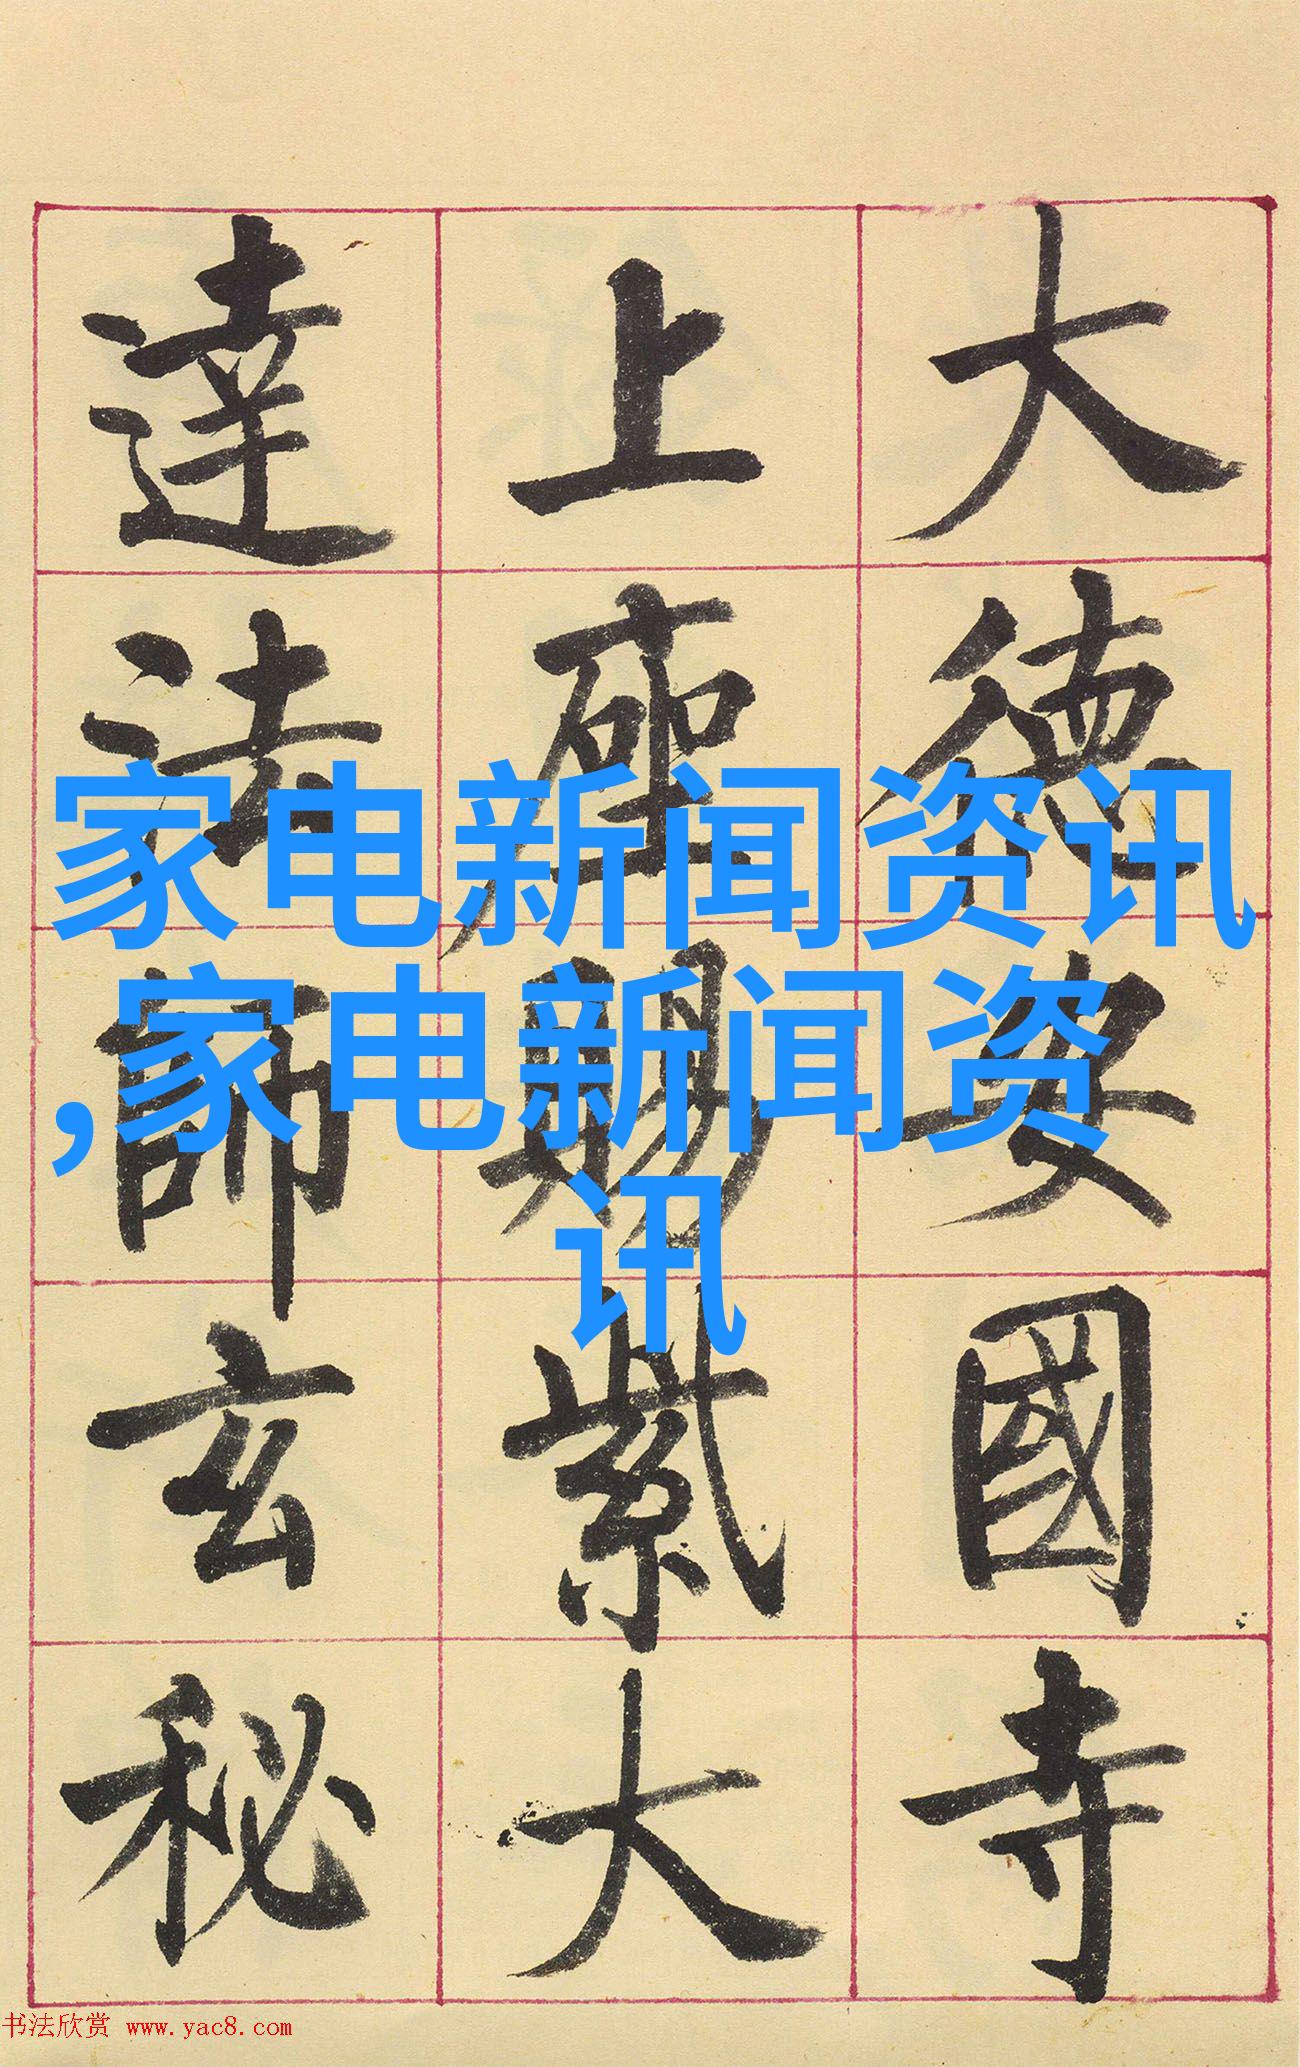 大德安國寺
上座賜紫大
達法師玄秘
家电新闻资讯
,家电新闻资
讯
书法欣赏 www.yac8.com